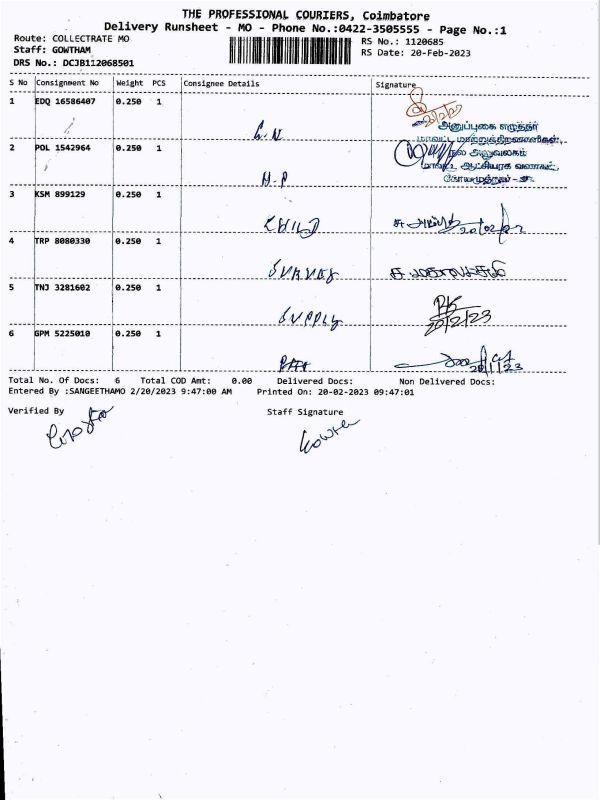 THE PROFESSIONAL COURIERS, Coimbatore
Delivery Runsheet - MO - Phone No.:0422-3505555 - Page No.:1
Route: COLLECTRATE MO
RS No.: 1120685
Staff: GOWTHAM
RS Date: 20-Feb-2023
DRS No.: DCJB112068501
S No Consignment No Weight PCS Consignee Details Signature
1 EDQ 16586407 0.250 1
அனுப்புகை எழுத்தர்
2 POL 1542964 0.250 1
H-P
3 KSM 899129 0.250 1
4 TRP 8080330 0.250 1
5 TNJ 3281602 0.250 1
20/2/23
SUPPLY
6 GPM 5225010 0.250 1
Total No. Of Docs: 6 Total COD Amt: 0.00 Delivered Docs: Non Delivered Docs:
Entered By :SANGEETHAMO 2/20/2023 9:47:00 AM Printed On: 20-02-2023 09:47:01
Verified By Staff Signature